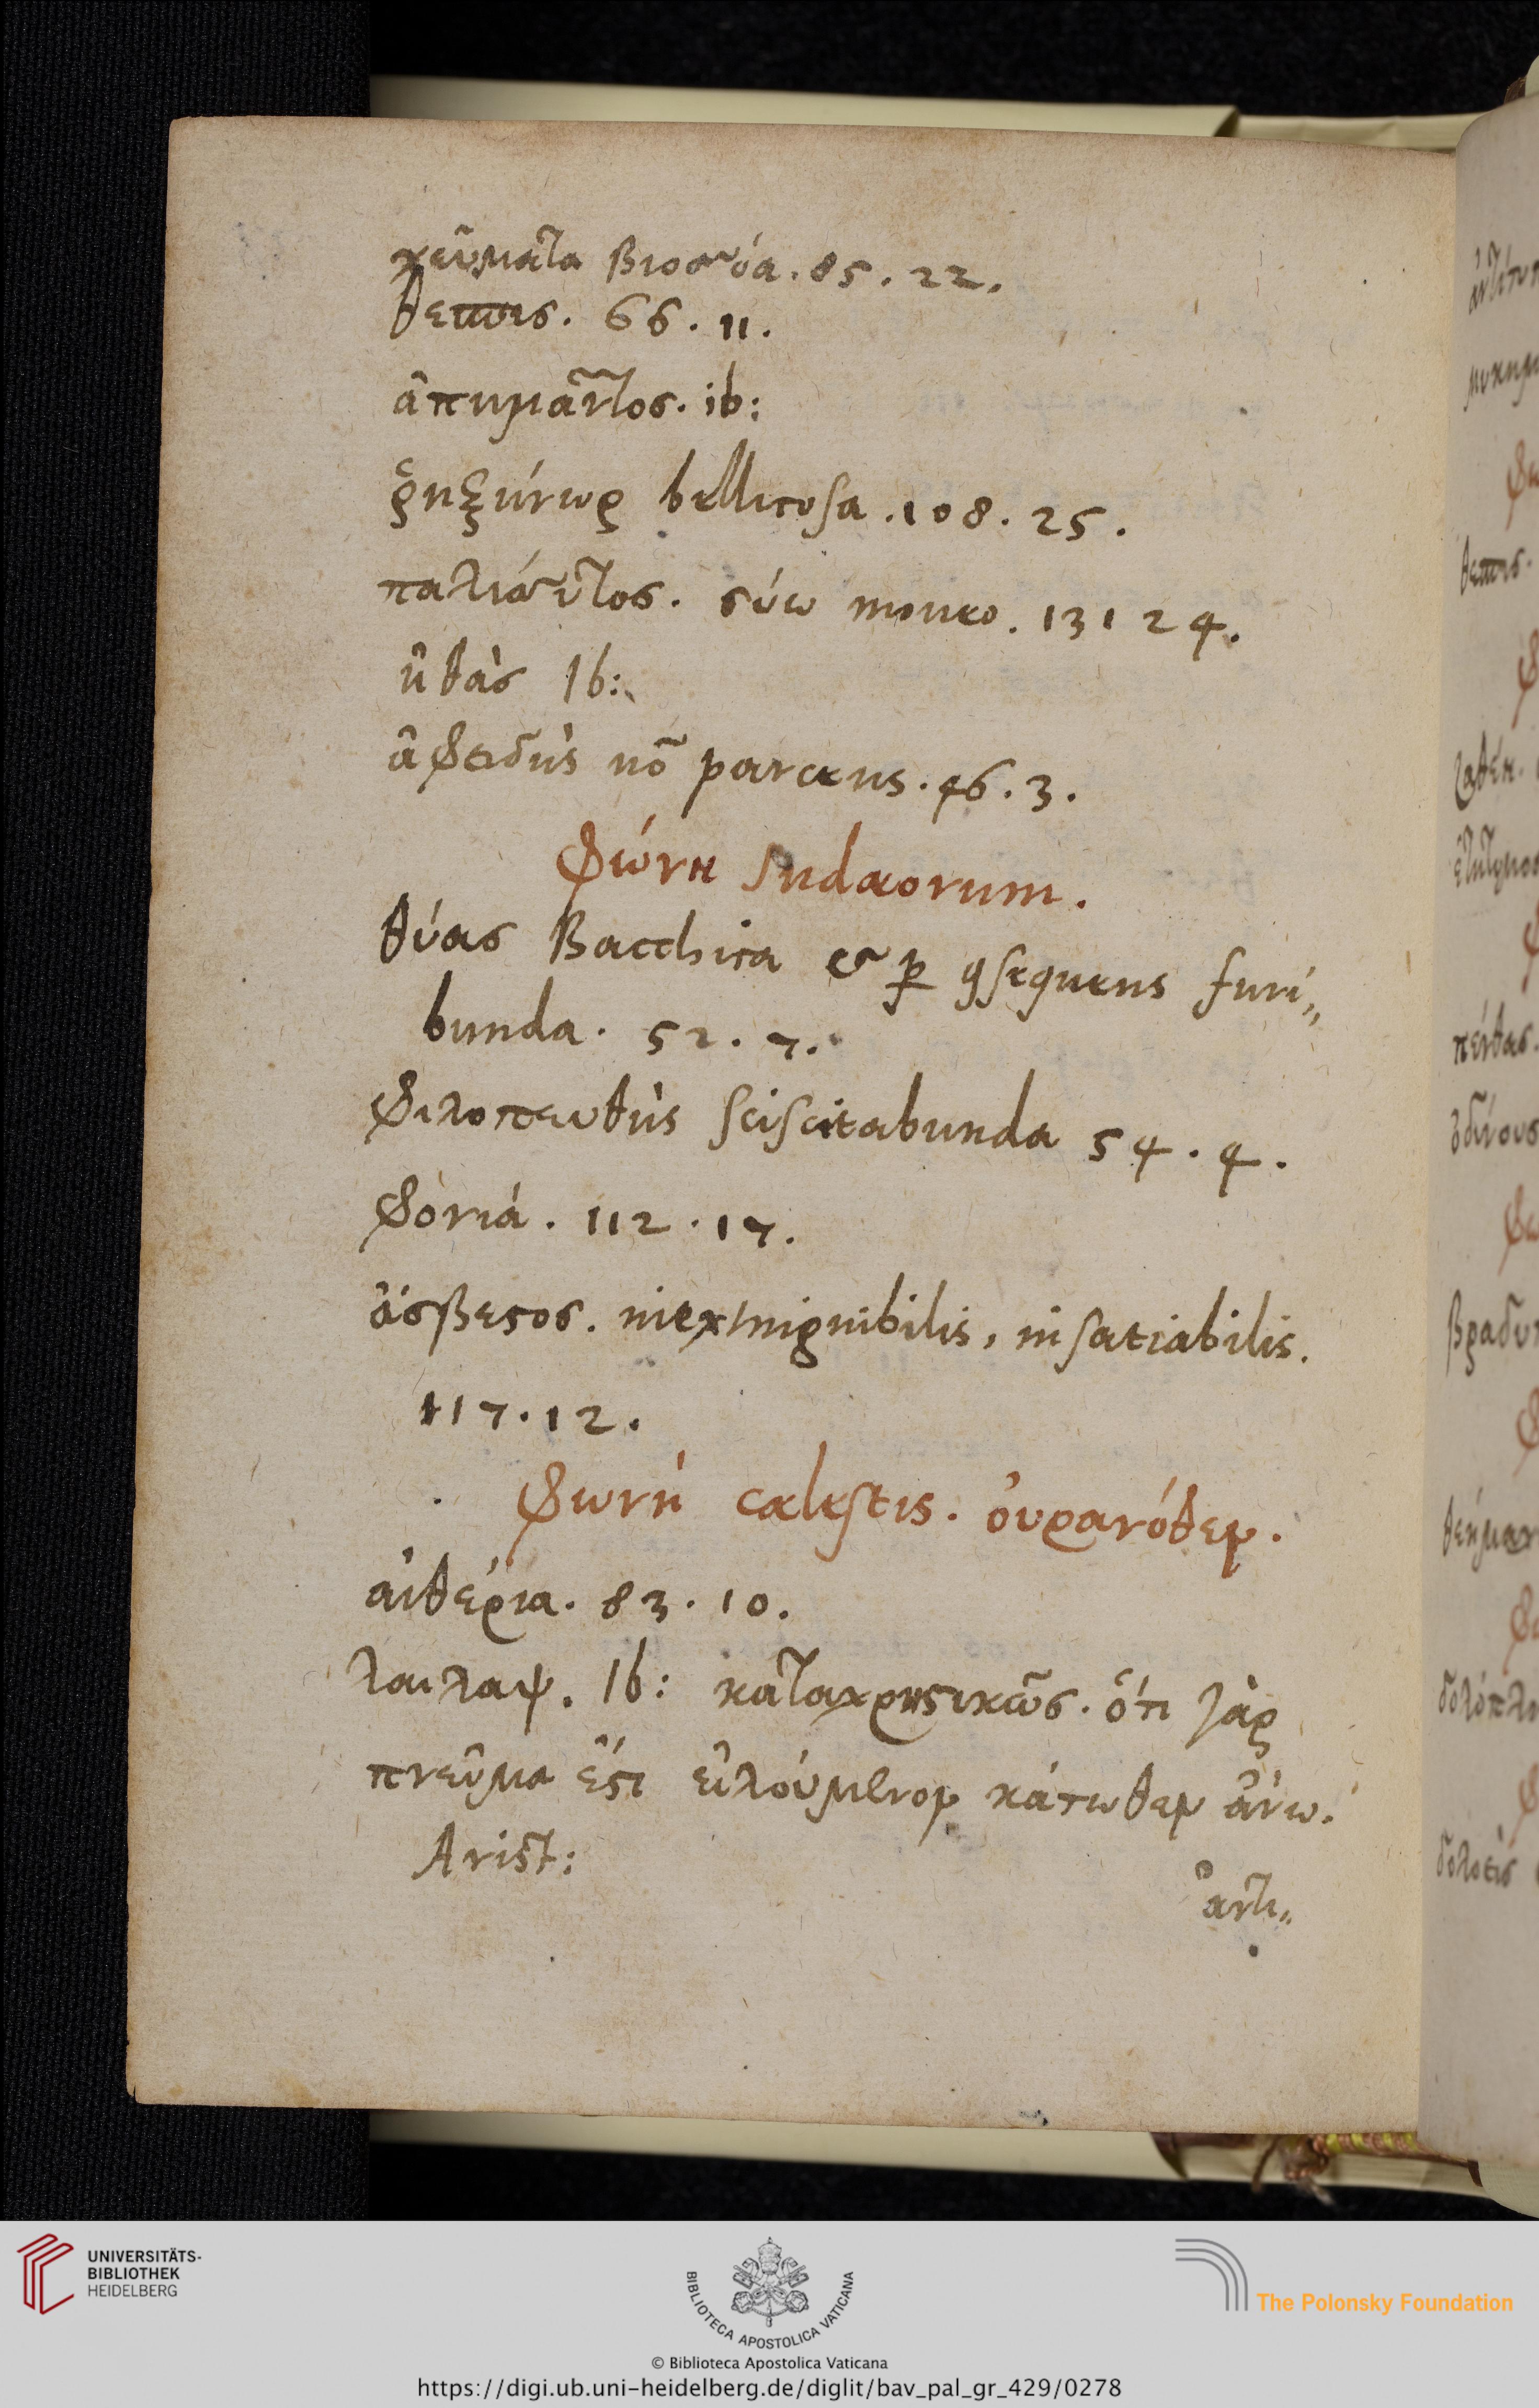 χεῦματα βιοσσόα. 85. 22.
θεσπις. 66. 11.
ἀπήμαντος. ib:
ῥηξήνωρ bellicosa. 108. 25.
παλιάυτος. σύω moueo. 131 24.
ἠθὰς Ib:
ἀφειδὴς nō parcens. 46. 3.
Φώνη Iudaeorum.
θύας Bacchica et per consequens furi„
bunda. 52. 7.
Φιλοπευθὴς sciscitabunda 54. 4.
Φονιά. 112. 17.
ἄσβεστος. inextinguibilis, insatiabilis.
117. 12.
Φωνὴ caelestis. οὐρανόθεν.
αἰθερία. 83. 10.
λαιλαψ. Ib: καταχρηστικῶς. ὅτι γὰρ
πνεῦμα ἔστι εἰλούμενον κάτωθεν ἄνω.
Arist:
ἀντι„
UNIVERSITÄTS-
BIBLIOTHEK
HEIDELBERG
BIBLIOTECA APOSTOLICA VATICANA
The Polonsky Foundation
© Biblioteca Apostolica Vaticana
https://digi.ub.uni-heidelberg.de/diglit/bav_pal_gr_429/0278